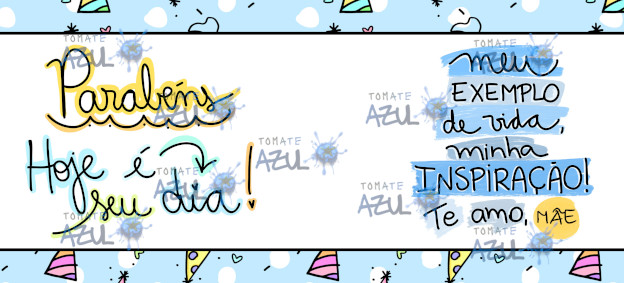 Parabéns
Hoje é
seu dia!
meu
EXEMPLO
de vida,
minha
INSPIRAÇÃO!
Te amo, MÃE
TOMATE
AZUL
TOMATE
AZUL
TOMATE
AZUL
TOMATE
AZUL
TOMATE
AZUL
TOMATE
AZUL
TOMATE
AZUL
TOMATE
AZUL
TOMATE
AZUL